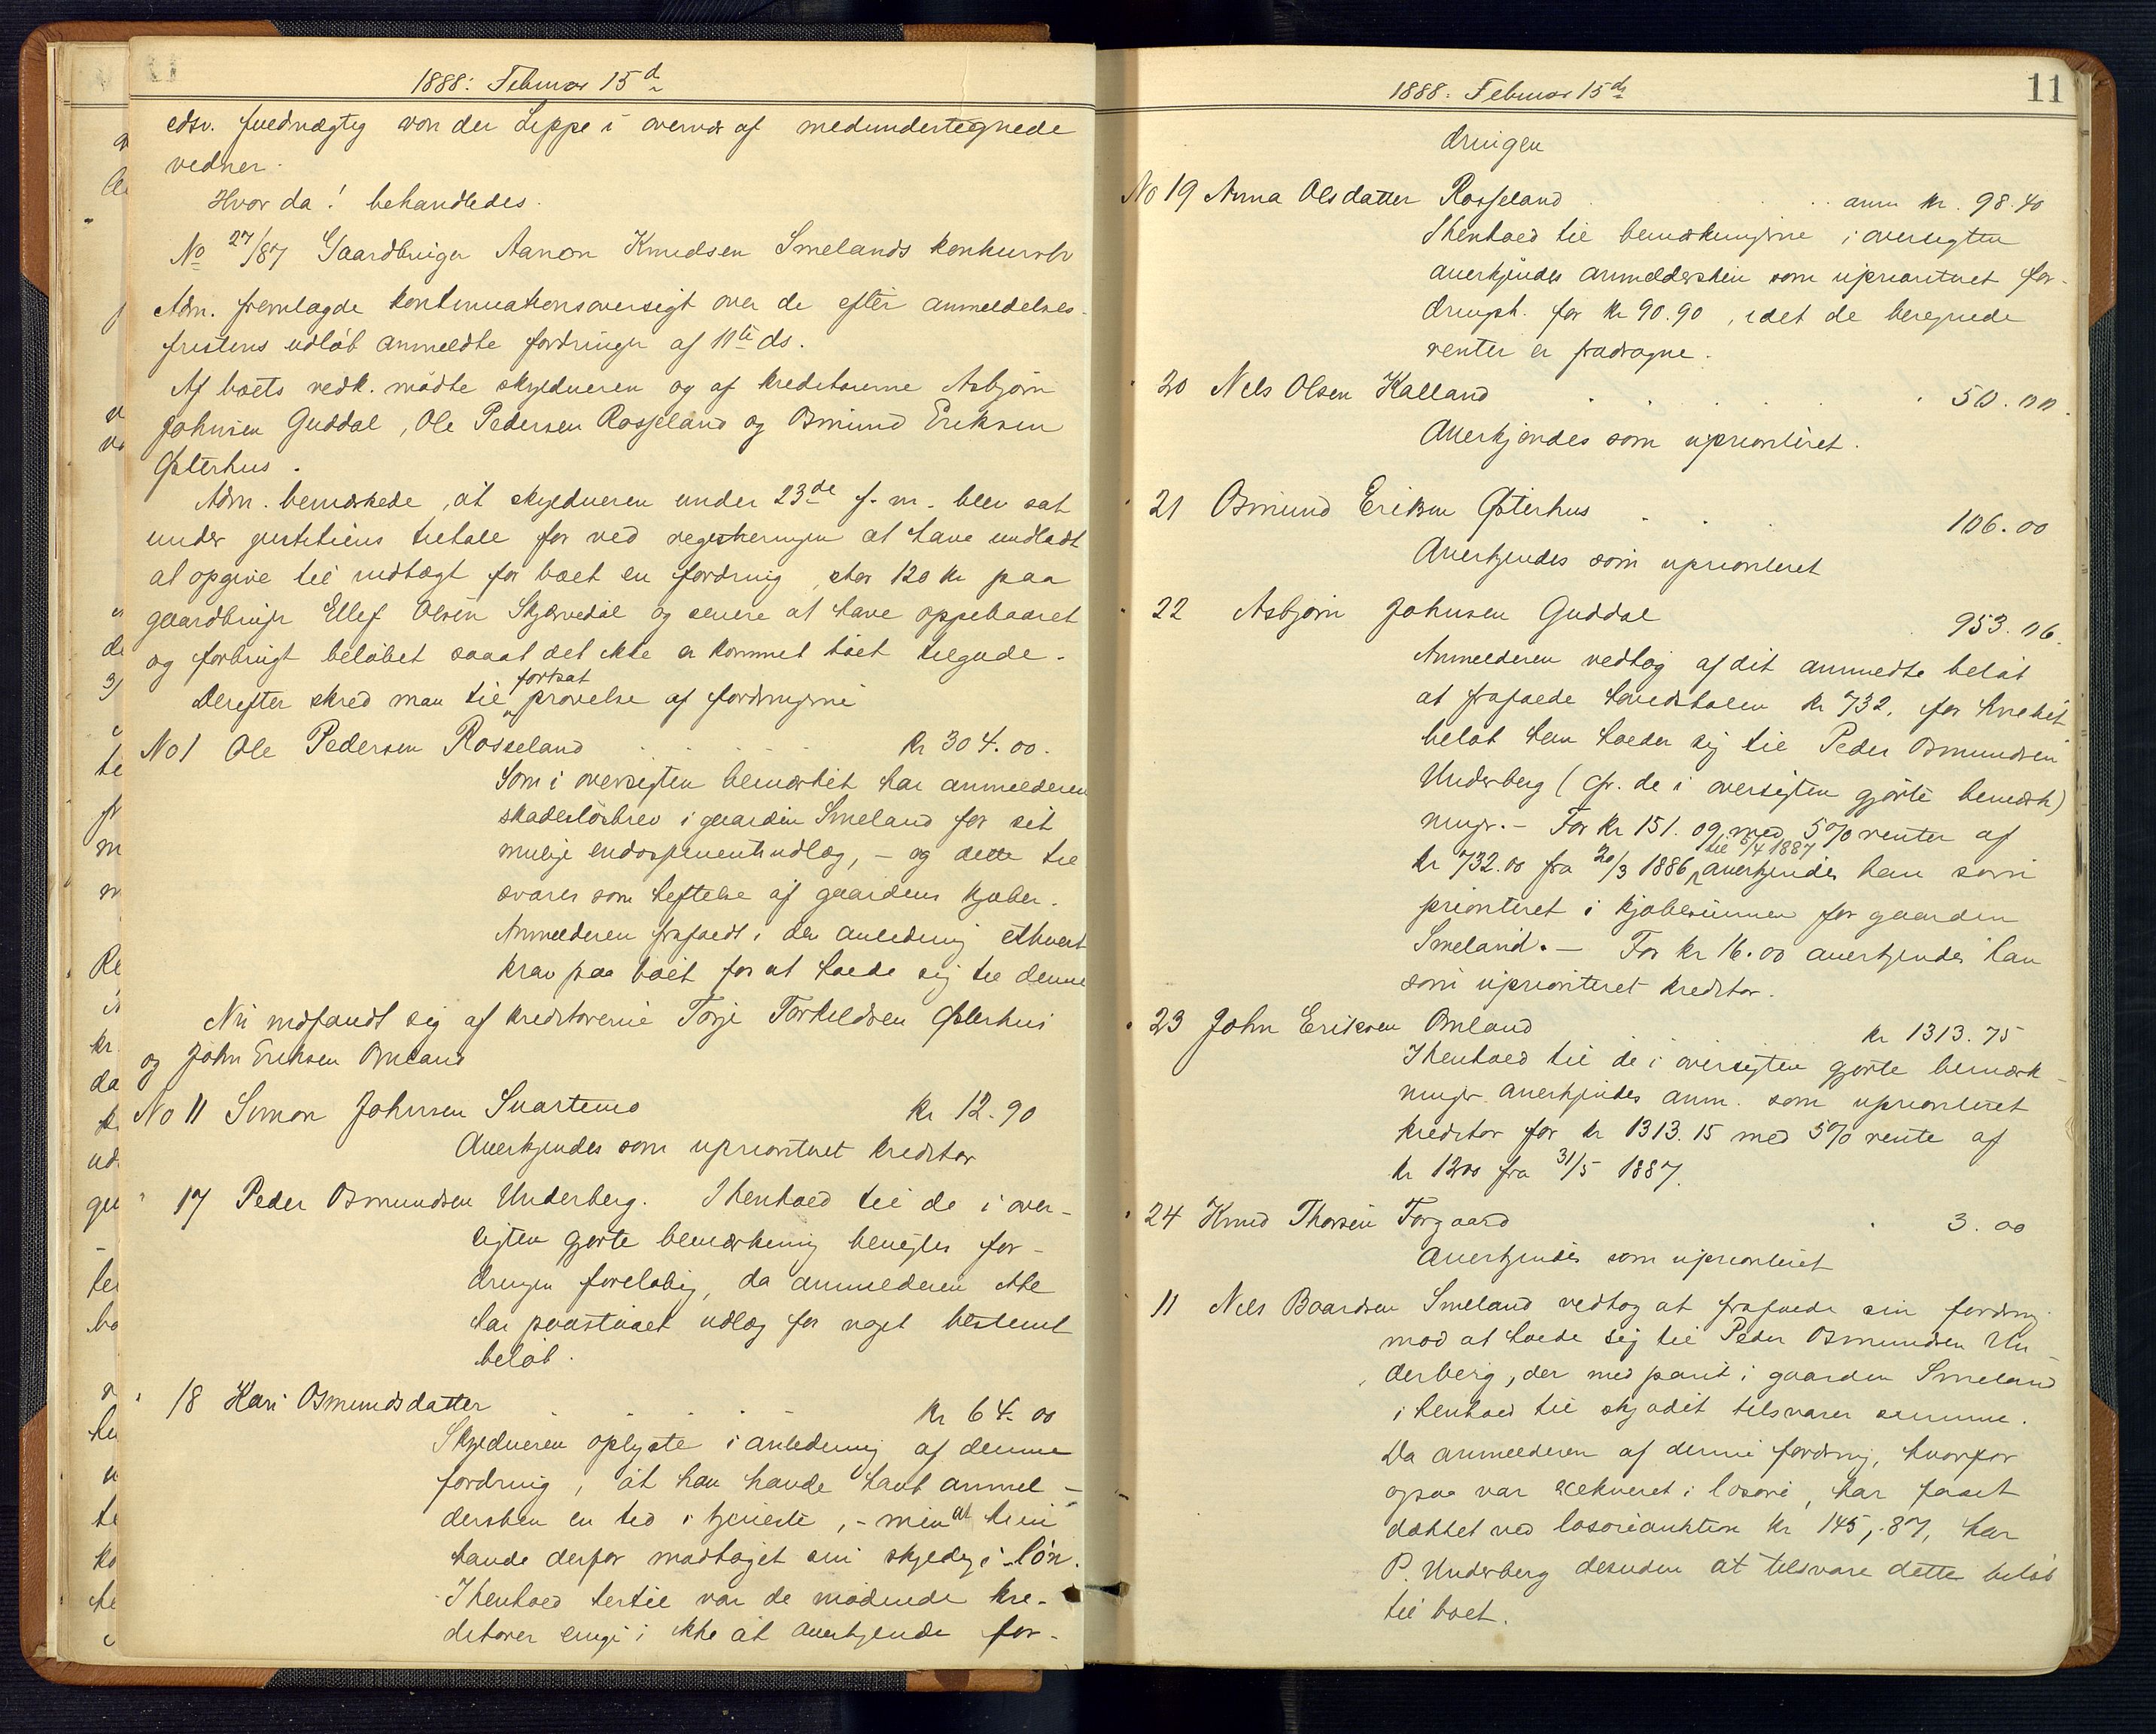 1888: Februar 15d
edsv. fuldmægtig von der Lippe i overvær af medundertegnede
vidner.
Hvor da! behandledes.
No 27/87 Gaardbruger Aanon Knudsen Smelands konkursbo
Adm. fremlagde kontinuationsoversigt over de efter anmeldelses-
fristens udløb anmeldte fordringer af 11te ds.
Af boets vedk. mødte skyldneren og af kreditorerne Asbjørn
Johnsen Guddal, Ole Pedersen Rosseland og Osmund Eriksen
Østerhus.
Adm. bemærkede, at skyldneren under 23de f. m. blev sat
under justitiens tiltale for ved registreringen at have undladt
at opgive til indtægt for boet en fordring, stor 120 kr paa
gaardbruger Ellef Olsen Skjærvedal og senere at have oppebaaret
og forbrugt beløbet saaat det ikke er kommet boet tilgode.
Derefter skred man til fortsat prøvelse af fordringerne
No 1 Ole Pedersen Rosseland kr 304.00.
Som i oversigten bemærket har anmelderen
skadesløsbrev i gaarden Smeland for sit
mulige endossementsudlæg, - og dette til
svares som heftelse af gaardens kjøber.
Anmelderen frafaldt i den anledning ethvert
krav paa boet for at holde sig til denne
Nu indfandt sig af kreditorerne Torje Torkildsen Østerhus
og John Eriksen Omland
No 11 Simon Johnsen Svartemo kr 12.90
Anerkjendes som uprioriteret kreditor
" 17 Peder Osmundsen Underberg. I henhold til de i over-
sigten gjorte bemærkning benegtes for-
dringen foreløbig, da anmelderen ikke
har paastaaet udlæg for noget bestemt
beløb.
" 18 Kari Osmundsdatter kr 64.00
Skyldneren oplyste i anledning af denne
fordring, at han havde havt anmel-
dersken en tid i tjeneste, - men at hun
havde derfor modtaget sin skyldige løn.
I henhold hertil var de mødende kre-
ditorer enige i ikke at anerkjende for-
1888. Februar 15de
11
dringen
No 19 Anna Olsdatter Rosseland anm kr. 98.40
I henhold til bemærkningerne i oversigten
anerkjendes anmeldersken som uprioriteret for-
dringsh. for kr 90.90, idet de beregnede
renter er fradragne.
" 20 Nils Olsen Kalland 50.00.
Anerkjendes som uprioriteret.
" 21 Osmund Eriksen Østerhus 106.00
Anerkjendes som uprioriteret
" 22 Asbjørn Johnsen Guddal 953.06.
Anmelderen vedtog af dit anmeldte beløb
at frafalde hovedstolen kr 732, for hvilket
beløb han holder sig til Peder Osmundsen
Underberg (cfr. de i oversigten gjorte bemærk)
ninger. - For kr 151.09, med 5% renter af
kr 732.00 fra 20/3 1886 til 6/4 1887 anerkjendes han som
prioriteret i kjøbesummen for gaarden
Smeland. - For kr 16.00 anerkjendes han
som uprioriteret kreditor.
" 23 John Eriksen Omland kr 1313.75
I henhold til de i oversigten gjorte bemærk-
ninger anerkjendes anm. som uprioriteret
kreditor for kr 1313.15 med 5% rente af
kr 1200 fra 31/5 1887.
" 24 Knud Thorsen Torgaard 3.00
Anerkjendes som uprioriteret
" 11 Nils Baardsen Smeland vedtog at frafalde sin fordring
mod at holde sig til Peder Osmundsen Un-
derberg, der med pant i gaarden Smeland
i henhold til skjødet tilsvarer summen.
Da anmelderen af denne fordring, hvorfor
ogsaa var exekveret i løsøre, har faaet
dækket ved løsøreauktion kr 145,87, har
P. Underberg desuden at tilsvare dette beløb
til boet.